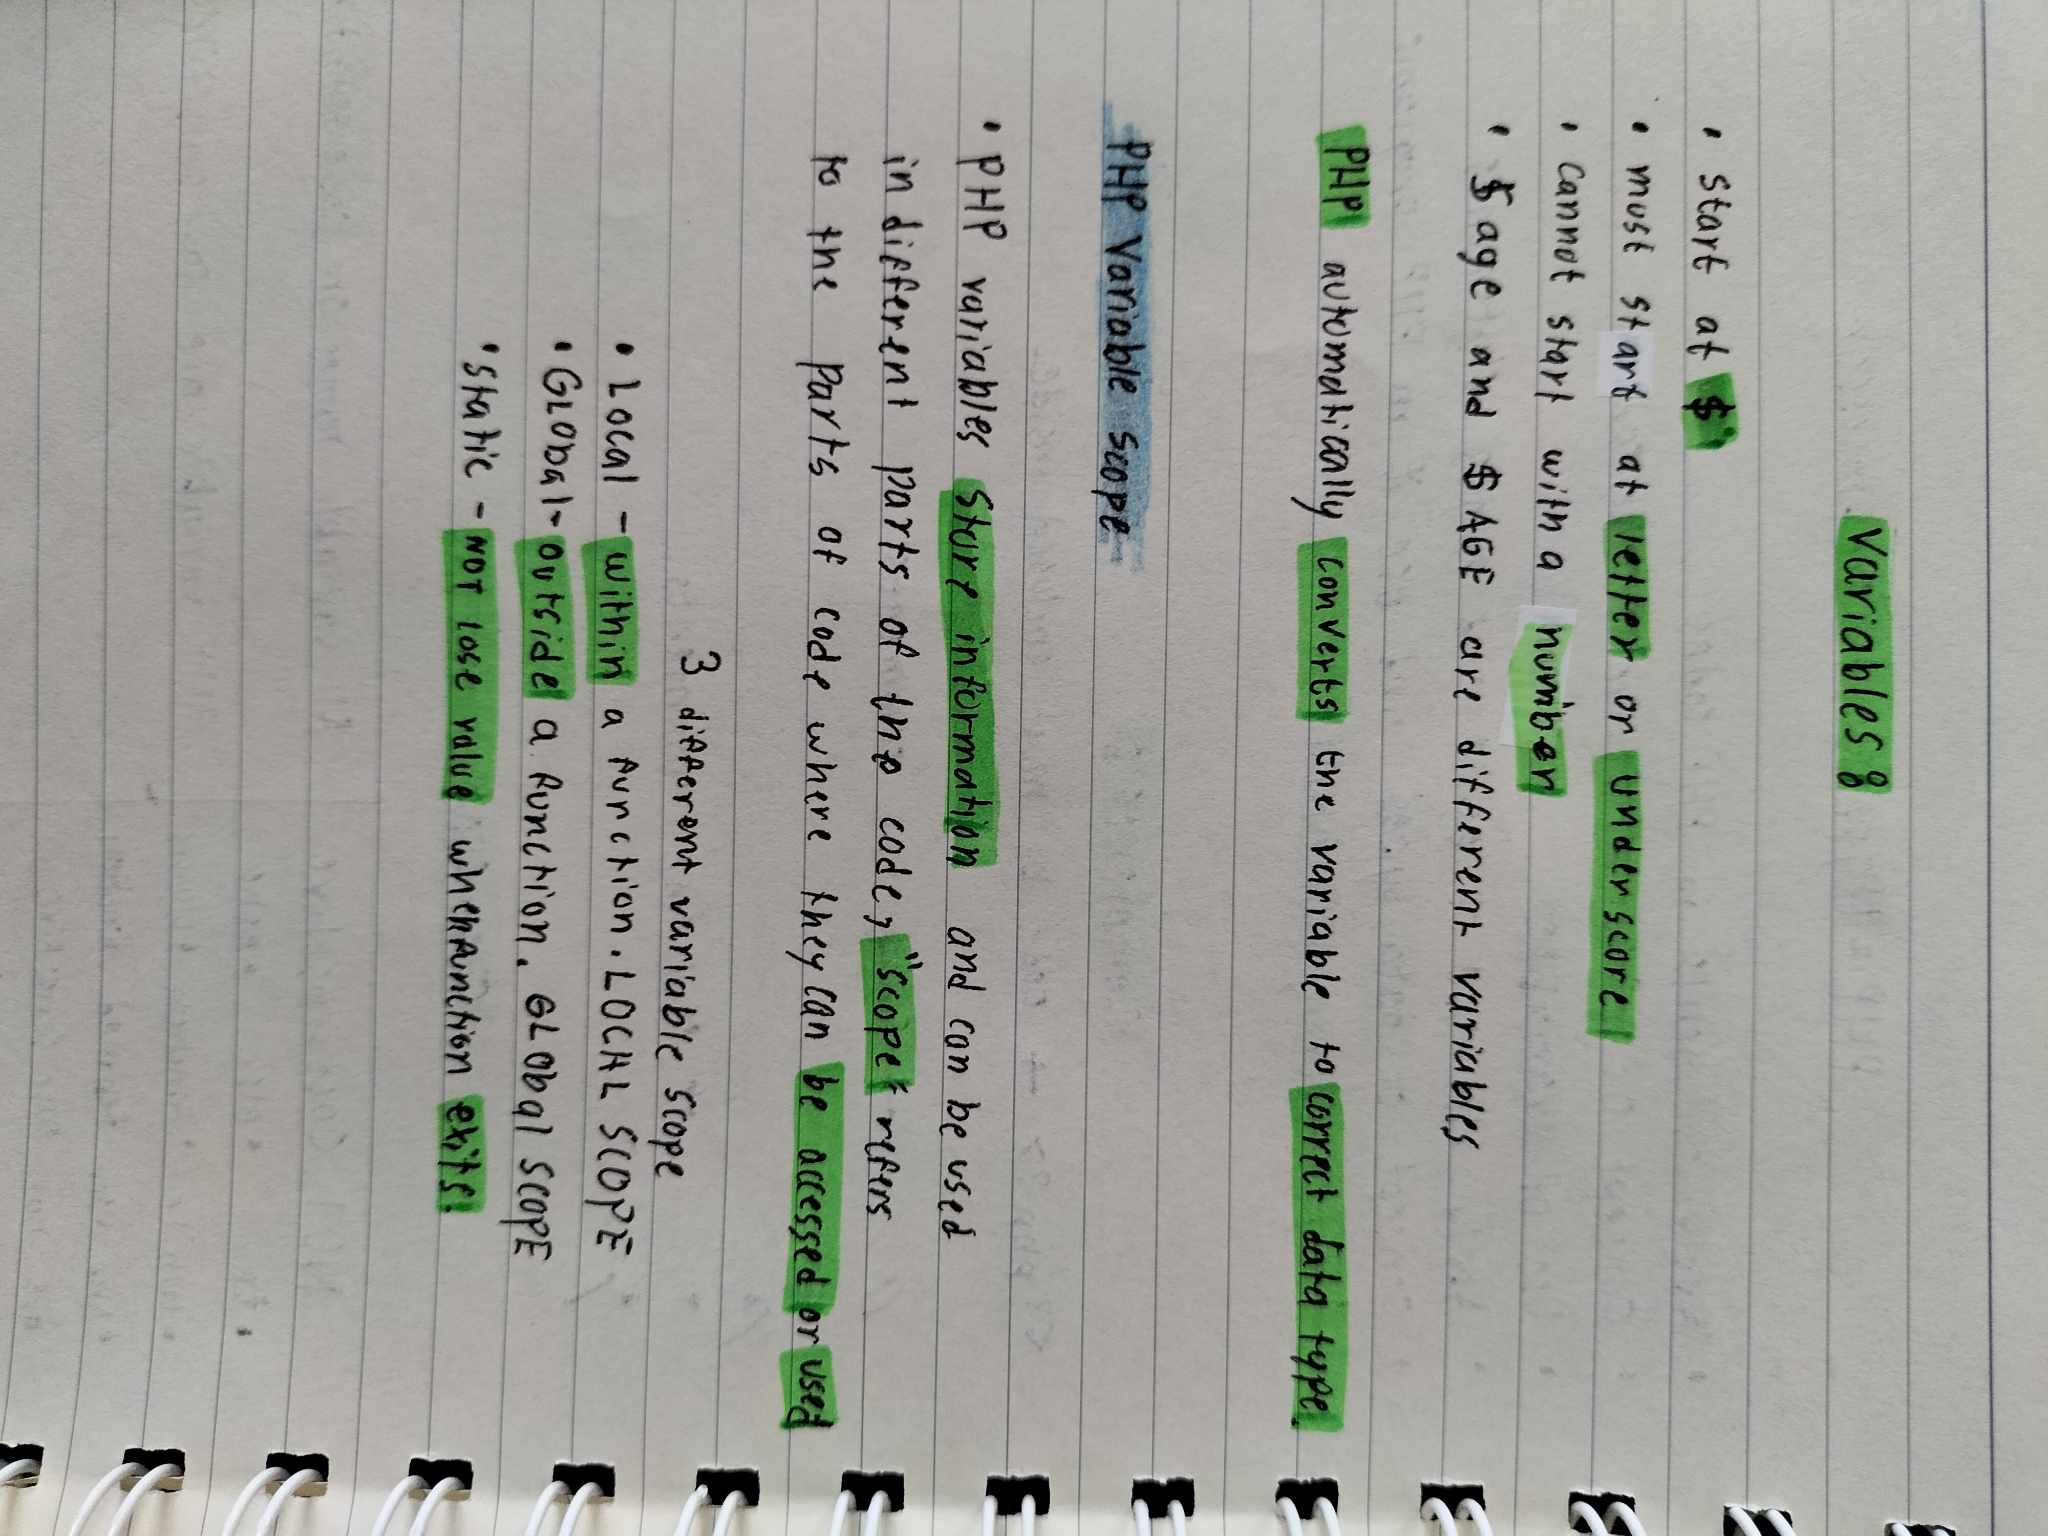 Variables:
• Start at $
• must start at letter or underscore
• Cannot start with a number
• $age and $AGE are different variables
PHP automatically converts the variable to correct data type.
PHP Variable Scope
• PHP variables Store information and can be used
in different parts of the code, "scope" refers
to the parts of code where they can be accessed or used
3 different variable scope
• Local - within a function. LOCAL SCOPE
• GLObal - outside a function. GLObal SCOPE
• Static - NOT lose value when function exits.